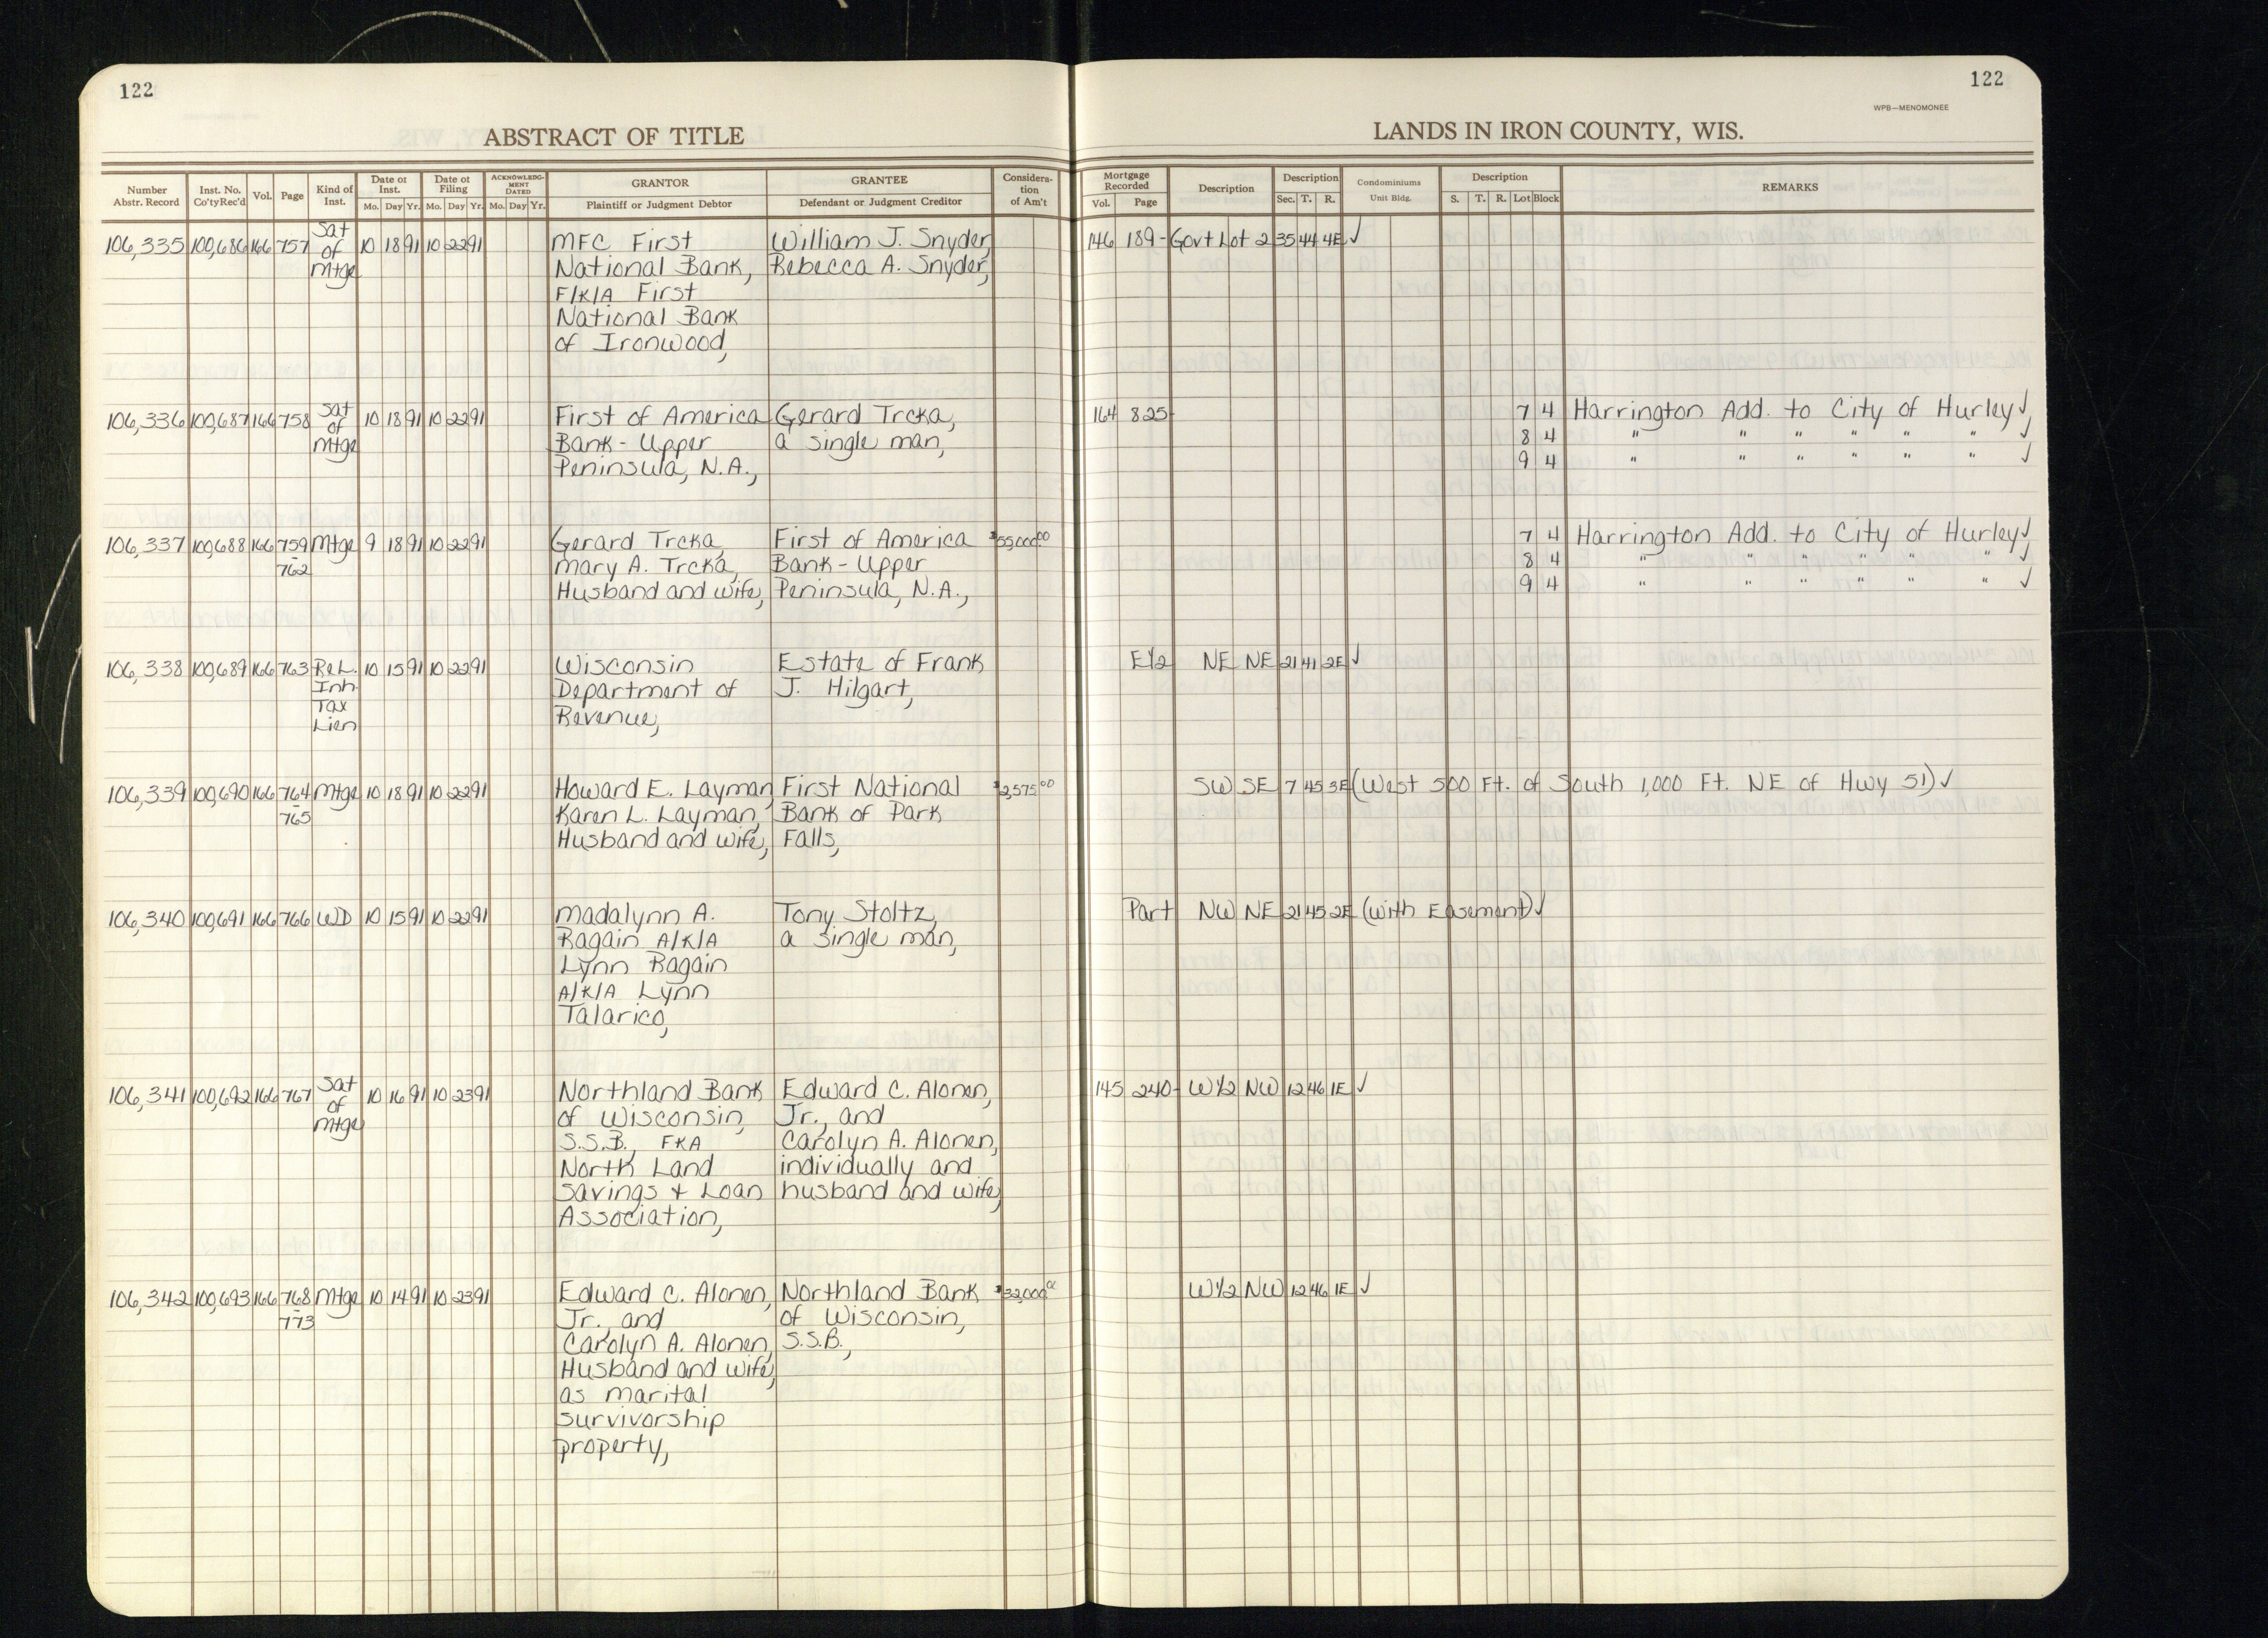 122
122
WPB—MENOMONEE
ABSTRACT OF TITLE
LANDS IN IRON COUNTY, WIS.
Number Abstr. Record Inst. No. Co'ty Rec'd Vol. Page Kind of Inst. Date of Inst. Mo. Day Yr. Date of Filing Mo. Day Yr. ACKNOWLEDGMENT DATED Mo. Day Yr. GRANTOR Plaintiff or Judgment Debtor GRANTEE Defendant or Judgment Creditor Consideration of Am't Mortgage Recorded Vol. Page Description Description Sec. T. R. Condominiums Unit Bldg. Description S. T. R. Lot Block REMARKS
106,335 100,686 166 757 Sat of Mtge 10 18 91 10 22 91 MFC First William J. Snyder, 146 189- Govt Lot 2 35 44 4E ✓
National Bank, Rebecca A. Snyder,
F/K/A First
National Bank
of Ironwood,
106,336 100,687 166 758 Sat of Mtge 10 18 91 10 22 91 First of America Gerard Trcka, 164 825- 7 4 Harrington Add. to City of Hurley ✓
Bank - Upper a single man, 8 4 " " " " " " ✓
Peninsula, N.A., 9 4 " " " " " " ✓
106,337 100,688 166 759 Mtge 9 18 91 10 22 91 Gerard Trcka, First of America $55,000.00 7 4 Harrington Add. to City of Hurley ✓
- 762 Mary A. Trcka, Bank - Upper 8 4 " " " " " " ✓
Husband and wife, Peninsula, N.A., 9 4 " " " " " " ✓
106,338 100,689 166 763 Rel. 10 15 91 10 22 91 Wisconsin Estate of Frank E1/2 NE NE 21 41 2E ✓
Inh. Department of J. Hilgart,
Tax Revenue,
Lien
106,339 100,690 166 764 Mtge 10 18 91 10 22 91 Howard E. Layman, First National $2,575.00 SW SE 7 45 3E (West 500 Ft. of South 1,000 Ft. NE of Hwy 51) ✓
- 765 Karen L. Layman, Bank of Park
Husband and wife, Falls,
106,340 100,691 166 766 WD 10 15 91 10 22 91 Madalynn A. Tony Stoltz, Part NW NE 21 45 2E (with Easement) ✓
Ragain A/K/A a single man,
Lynn Ragain
A/K/A Lynn
Talarico,
106,341 100,692 166 767 Sat of Mtge 10 16 91 10 23 91 Northland Bank Edward C. Alonen, 145 240- W1/2 NW 12 46 1E ✓
of Wisconsin, Jr., and
S.S.B., FKA Carolyn A. Alonen,
North Land individually and
Savings + Loan husband and wife,
Association,
106,342 100,693 166 768 Mtge 10 14 91 10 23 91 Edward C. Alonen, Northland Bank $32,000.00 W1/2 NW 12 46 1E ✓
- 773 Jr., and of Wisconsin,
Carolyn A. Alonen, S.S.B.,
Husband and wife,
as marital
survivorship
property,